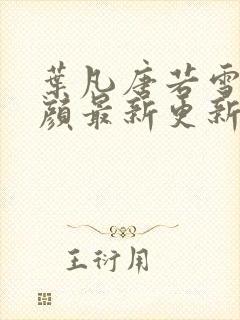 葉凡唐若雪
顔最新更新
王衍用